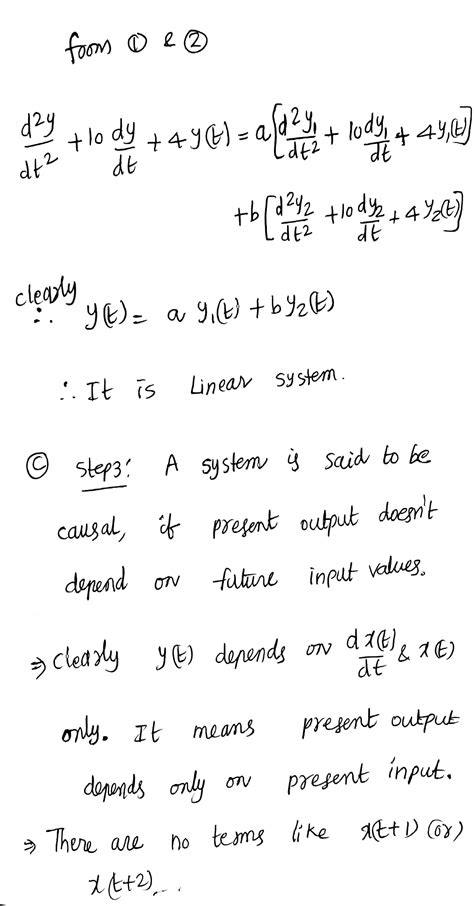 from ① & ②
d²y/dt² + 10 dy/dt + 4y(t) = a[d²y₁/dt² + 10 dy₁/dt + 4y₁(t)]
+ b[d²y₂/dt² + 10 dy₂/dt + 4y₂(t)]
clearly
∴ y(t) = a y₁(t) + b y₂(t)
∴ It is Linear system.
Ⓒ Step3: A system is said to be
causal, if present output doesn't
depend on future input values.
⇒ Clearly y(t) depends on dx(t)/dt & x(t)
only. It means present output
depends only on present input.
⇒ There are no terms like x(t+1) (or)
x(t+2)...